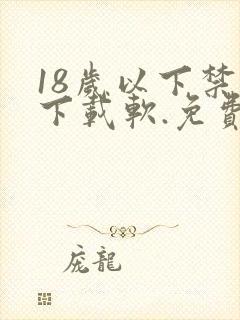 18歳以下禁
下載軟.免費
庞龍